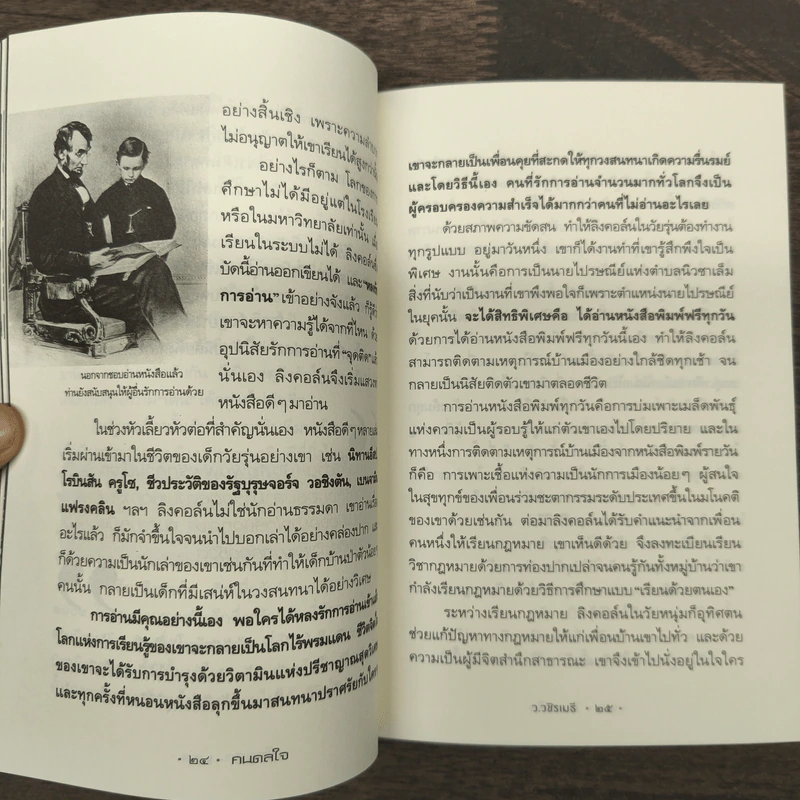 อย่างสิ้นเชิง เพราะความลำบาก
ไม่อนุญาตให้เขาเรียนได้สูงกว่านี้
อย่างไรก็ตาม โลกของการ
ศึกษาไม่ได้มีอยู่แต่ในโรงเรียน
หรือในมหาวิทยาลัยเท่านั้น
เรียนในระบบไม่ได้ ลิงคอล์น
บัดนี้อ่านออกเขียนได้ และ
การอ่าน” เข้าอย่างจังแล้ว ก็รู้
เขาจะหาความรู้ได้จากที่ไหน ด้วย
อุปนิสัยรักการอ่านที่ “จุดติด” แล้ว
นั่นเอง ลิงคอล์นจึงเริ่มแสวงหา
หนังสือดีๆ มาอ่าน
นอกจากชอบอ่านหนังสือแล้ว
ท่านยังสนับสนุนให้ผู้อื่นรักการอ่านด้วย
ในช่วงหัวเลี้ยวหัวต่อที่สำคัญนั่นเอง หนังสือดีๆ หลายเล่ม
เริ่มผ่านเข้ามาในชีวิตของเด็กวัยรุ่นอย่างเขา เช่น นิทานอีสป
โรบินสัน ครูโซ, ชีวประวัติของรัฐบุรุษจอร์จ วอชิงตัน, เบนจามิน
แฟรงคลิน ฯลฯ ลิงคอล์นไม่ใช่นักอ่านธรรมดา เขาอ่าน
อะไรแล้ว ก็มักจำขึ้นใจจนนำไปบอกเล่าได้อย่างคล่องปาก และ
ก็ด้วยความเป็นนักเล่าของเขาเช่นกันที่ทำให้เด็กบ้านป่าตัวน้อยๆ
คนนั้น กลายเป็นเด็กที่มีเสน่ห์ในวงสนทนาได้อย่างวิเศษ
การอ่านมีคุณอย่างนี้เอง พอใครได้หลงรักการอ่านเข้าแล้ว
โลกแห่งการเรียนรู้ของเขาจะกลายเป็นโลกไร้พรมแดน ชีวิตจิตใจ
ของเขาจะได้รับการบำรุงด้วยวิตามินแห่งปรีชาญาณ
และทุกครั้งที่หนอนหนังสือลุกขึ้นมาสนทนาปราศรัยกับใคร
• ๒๔ • คนดลใจ
เขาจะกลายเป็นเพื่อนคุยที่สะกดให้ทุกวงสนทนาเกิดความรื่นรมย์
และโดยวิธีนี้เอง คนที่รักการอ่านจำนวนมากทั่วโลกจึงเป็น
ผู้ครอบครองความสำเร็จได้มากกว่าคนที่ไม่อ่านอะไรเลย
ด้วยสภาพความขัดสน ทำให้ลิงคอล์นในวัยรุ่นต้องทำงาน
ทุกรูปแบบ อยู่มาวันหนึ่ง เขาก็ได้งานทำที่เขารู้สึกพึงใจเป็น
พิเศษ งานนั้นคือการเป็นนายไปรษณีย์แห่งตำบลนิวซาเล็ม
สิ่งที่นับว่าเป็นงานที่เขาพึงพอใจก็เพราะตำแหน่งนายไปรษณีย์
ในยุคนั้น จะได้สิทธิพิเศษคือ ได้อ่านหนังสือพิมพ์ฟรีทุกวัน
ด้วยการได้อ่านหนังสือพิมพ์ฟรีทุกวันนี้เอง ทำให้ลิงคอล์น
สามารถติดตามเหตุการณ์บ้านเมืองอย่างใกล้ชิดทุกเช้า จน
กลายเป็นนิสัยติดตัวเขามาตลอดชีวิต
การอ่านหนังสือพิมพ์ทุกวันคือการบ่มเพาะเมล็ดพันธุ์
แห่งความเป็นผู้รอบรู้ให้แก่ตัวเขาเองไปโดยปริยาย และใน
ทางหนึ่งการติดตามเหตุการณ์บ้านเมืองจากหนังสือพิมพ์รายวัน
ก็คือ การเพาะเชื้อแห่งความเป็นนักการเมืองน้อยๆ ผู้สนใจ
ในสุขทุกข์ของเพื่อนร่วมชะตากรรมระดับประเทศขึ้นในมโนคติ
ของเขาด้วยเช่นกัน ต่อมาลิงคอล์นได้รับคำแนะนำจากเพื่อน
คนหนึ่งให้เรียนกฎหมาย เขาเห็นดีด้วย จึงลงทะเบียนเรียน
วิชากฎหมายด้วยการท่องปากเปล่าจนคนรู้กันทั้งหมู่บ้านว่าเขา
กำลังเรียนกฎหมายด้วยวิธีการศึกษาแบบ “เรียนด้วยตนเอง”
ระหว่างเรียนกฎหมาย ลิงคอล์นในวัยหนุ่มก็อุทิศตน
ช่วยแก้ปัญหาทางกฎหมายให้แก่เพื่อนบ้านเขาไปทั่ว และด้วย
ความเป็นผู้มีจิตสำนึกสาธารณะ เขาจึงเข้าไปนั่งอยู่ในใจใคร
ว.วชิรเมธี • ๒๕ •